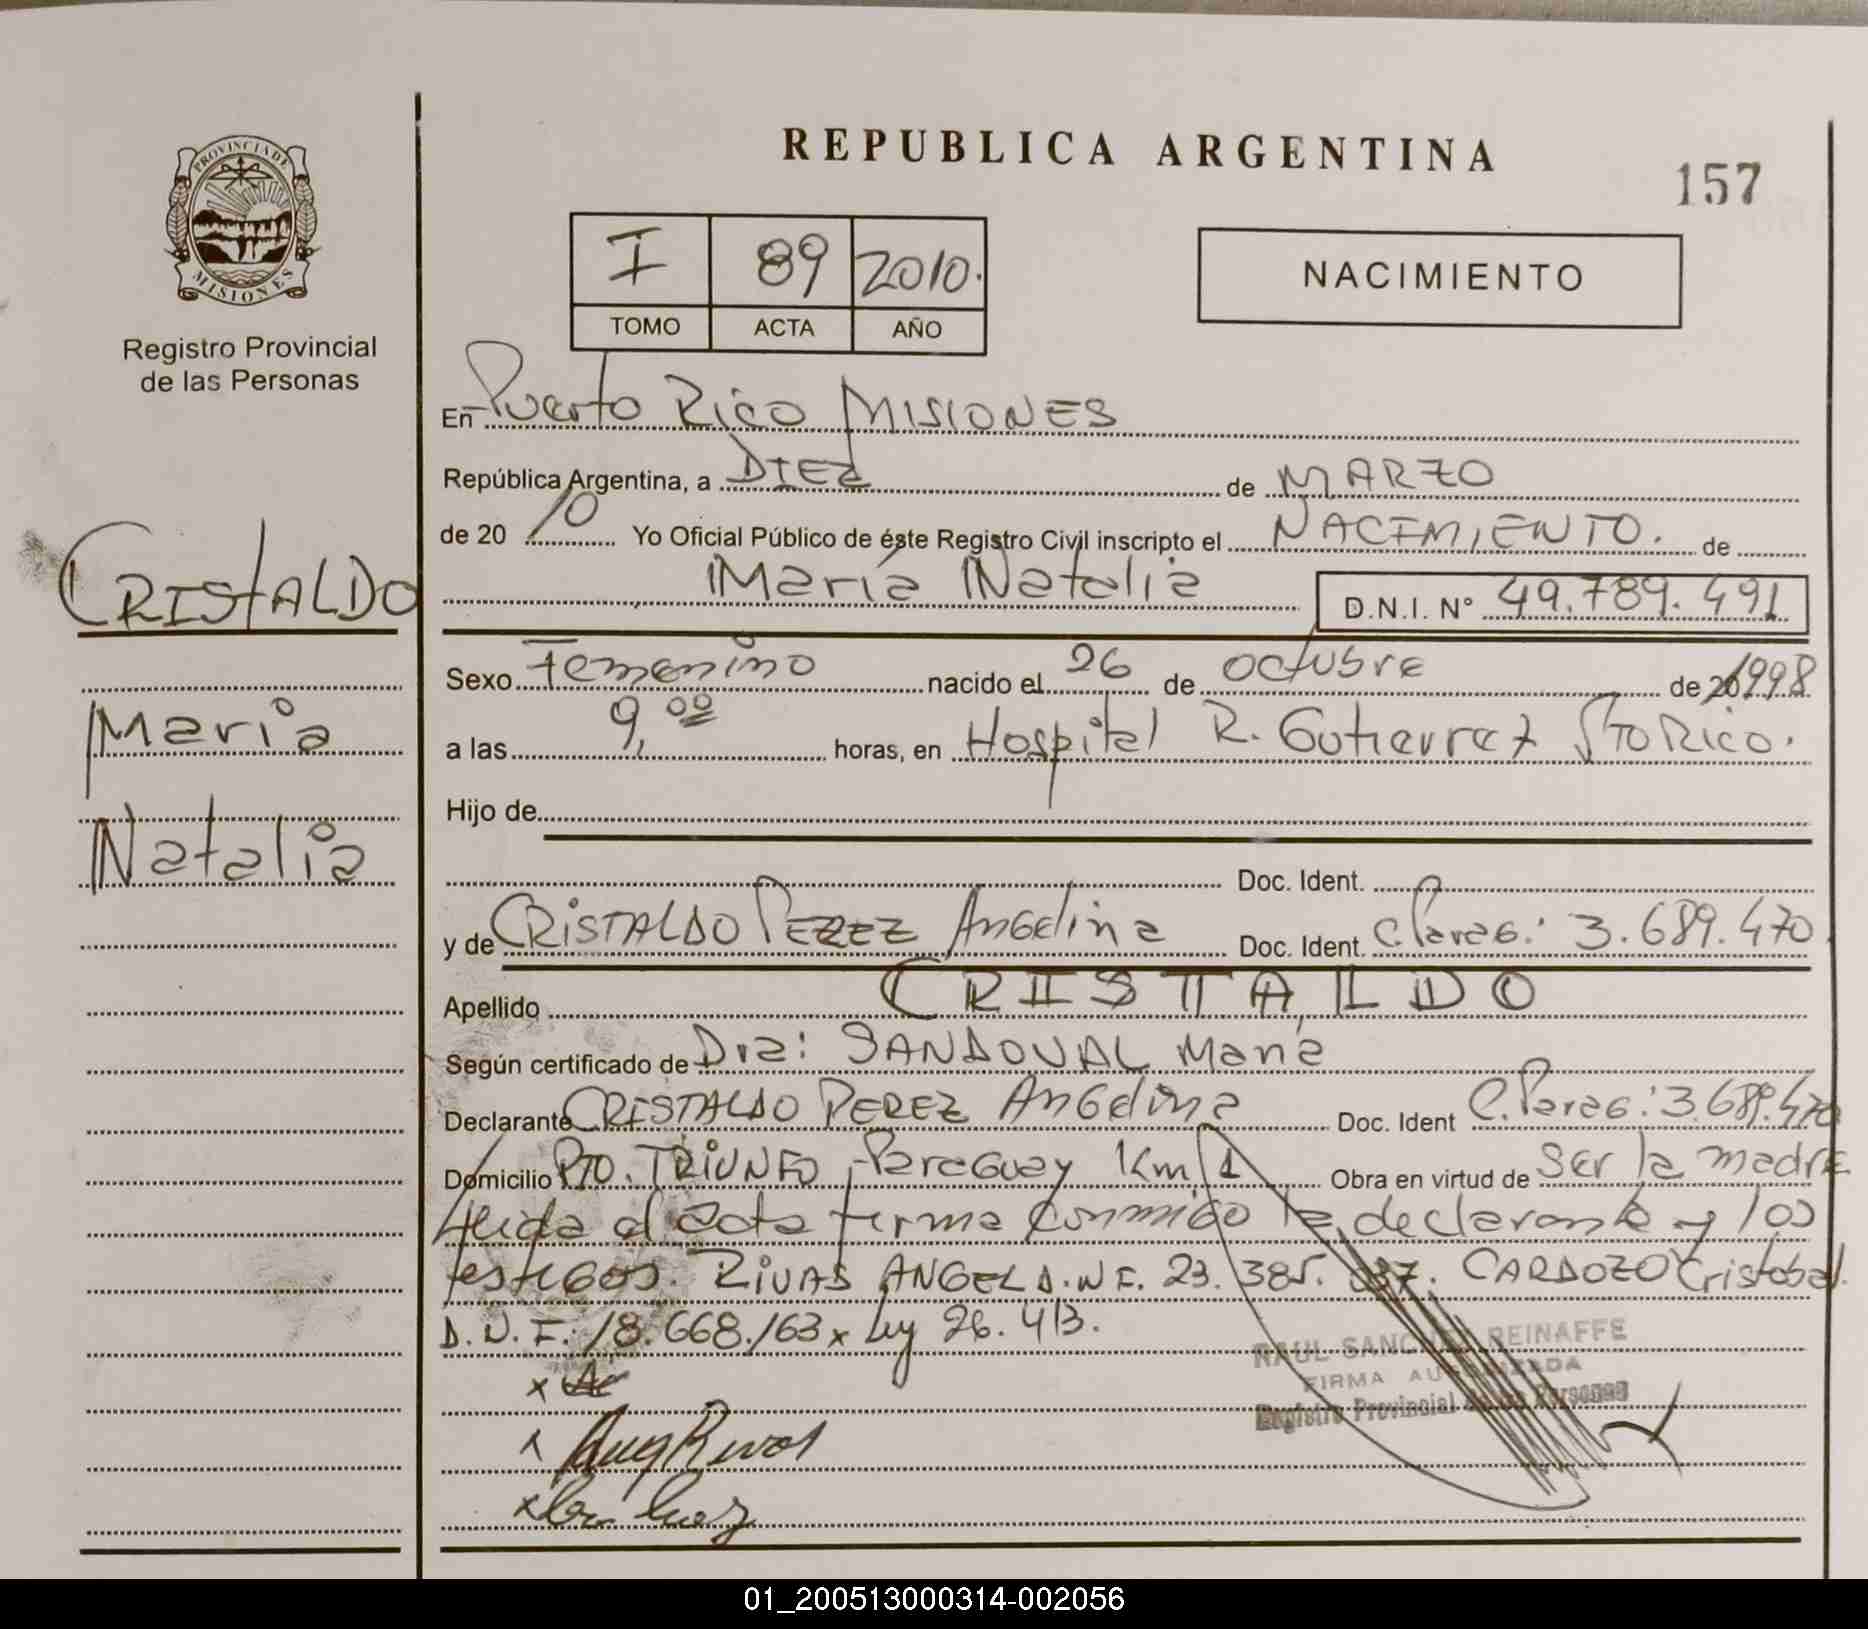 REPUBLICA ARGENTINA
157
PROVINCIA DE
MISIONES
Registro Provincial
de las Personas
I 89 2010.
TOMO ACTA AÑO
NACIMIENTO
En Puerto Rico MISIONES
República Argentina, a DIEZ de MARZO
de 20 10 Yo Oficial Público de éste Registro Civil inscripto el NACIMIENTO. de
María Natalia D.N.I. N° 49.789.491
CRISTALDO
Maria
Natalia
Sexo Femenino nacido el 26 de octubre de 1998
a las 9,00 horas, en Hospital R. Gutierrez Pto Rico.
Hijo de
Doc. Ident.
y de CRISTALDO PEREZ Angelina Doc. Ident. C. Parag.: 3.689.470
Apellido CRISTALDO
Según certificado de Dra: SANDOVAL María
Declarante CRISTALDO PEREZ Angelina Doc. Ident C. Parag.: 3.689.470
Domicilio PTO. TRIUNFO Paraguay Km 1 Obra en virtud de Ser la madre
Leida el acta firma conmigo la declarante y los
testigos. RIVAS ANGEL D.N.I. 23.385. CARDOZO Cristobal.
D.N.I. 18.668.163 x Ley 26.413.
RAUL SANCHEZ REINAFFE
FIRMA AUTORIZADA
Registro Provincial de las Personas
01_200513000314-002056